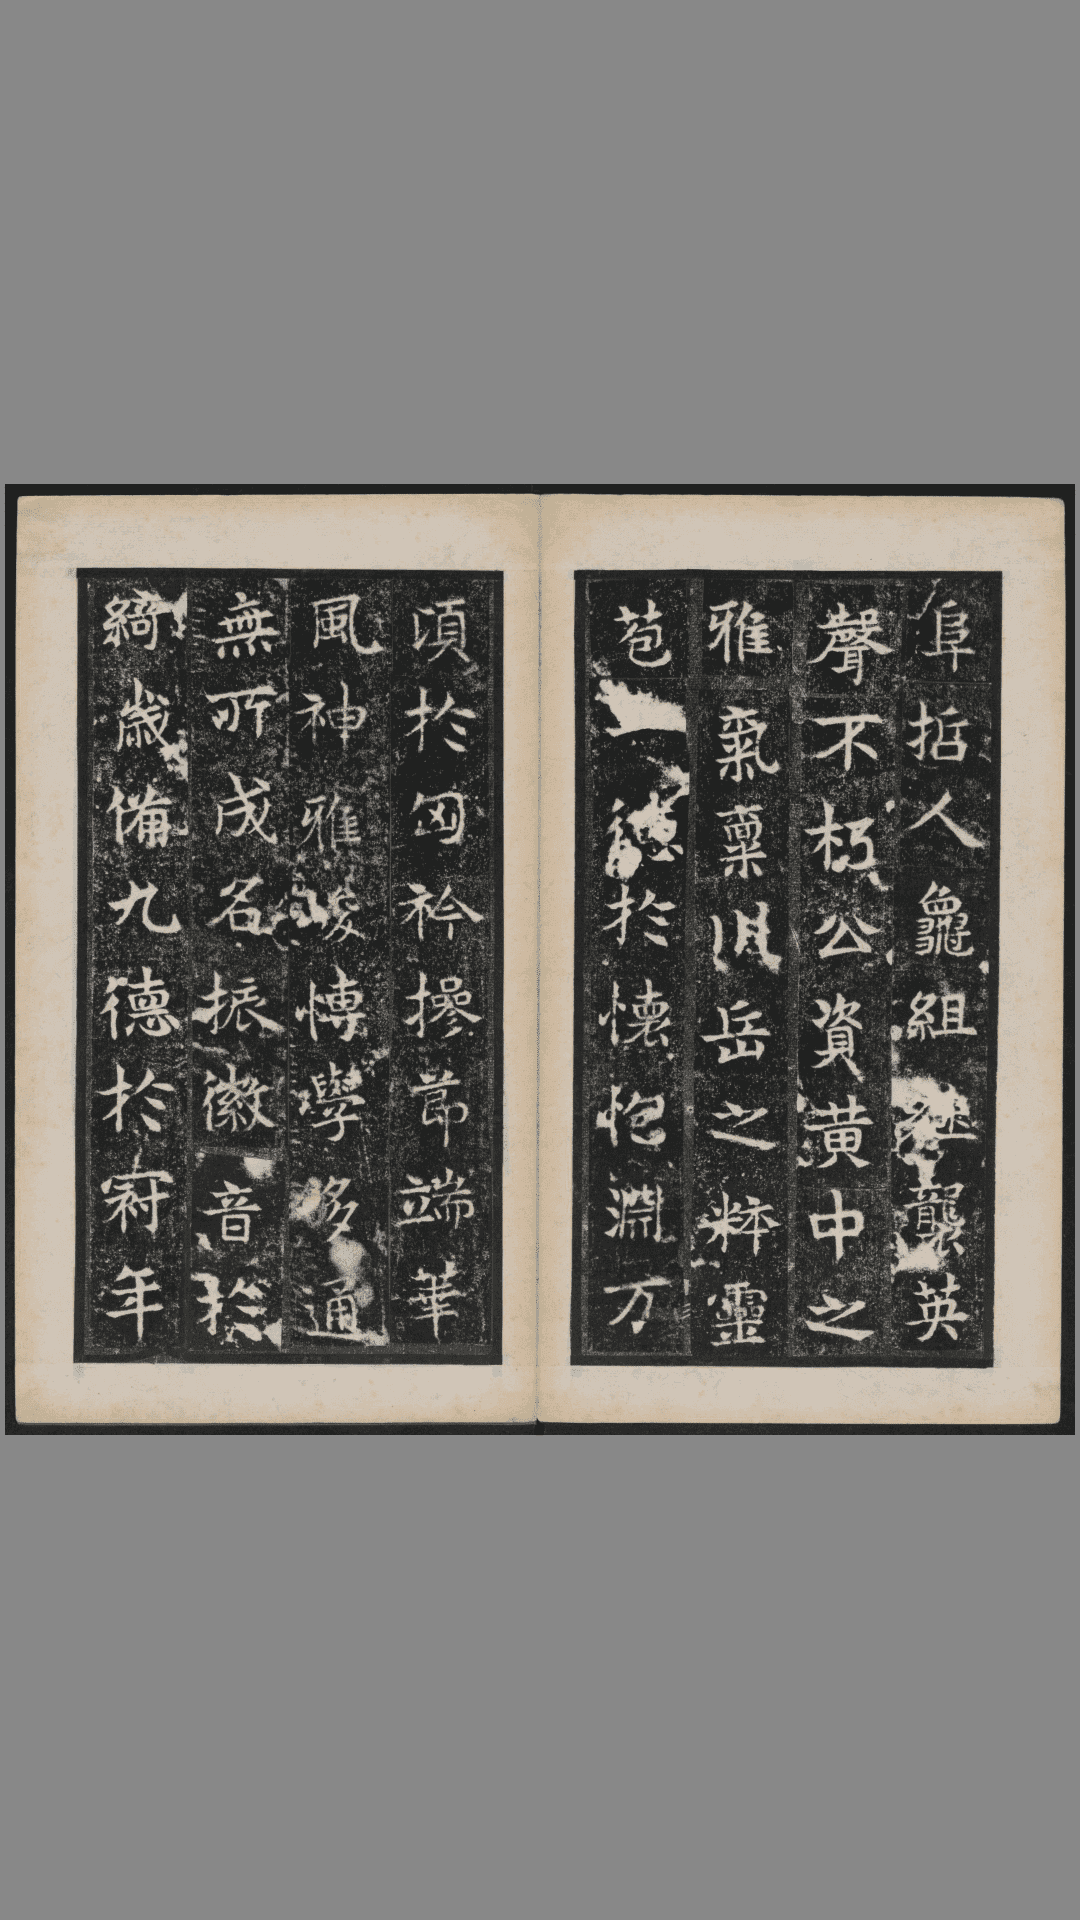 阜哲人龜組継襲英
聲不朽公資黄中之
雅氣稟川岳之粹靈
苞一德於懷抱淵万
頃於匈衿操節端華
風神雅峻博學多通
無所成名振徽音於
綺歲備九德於冠年